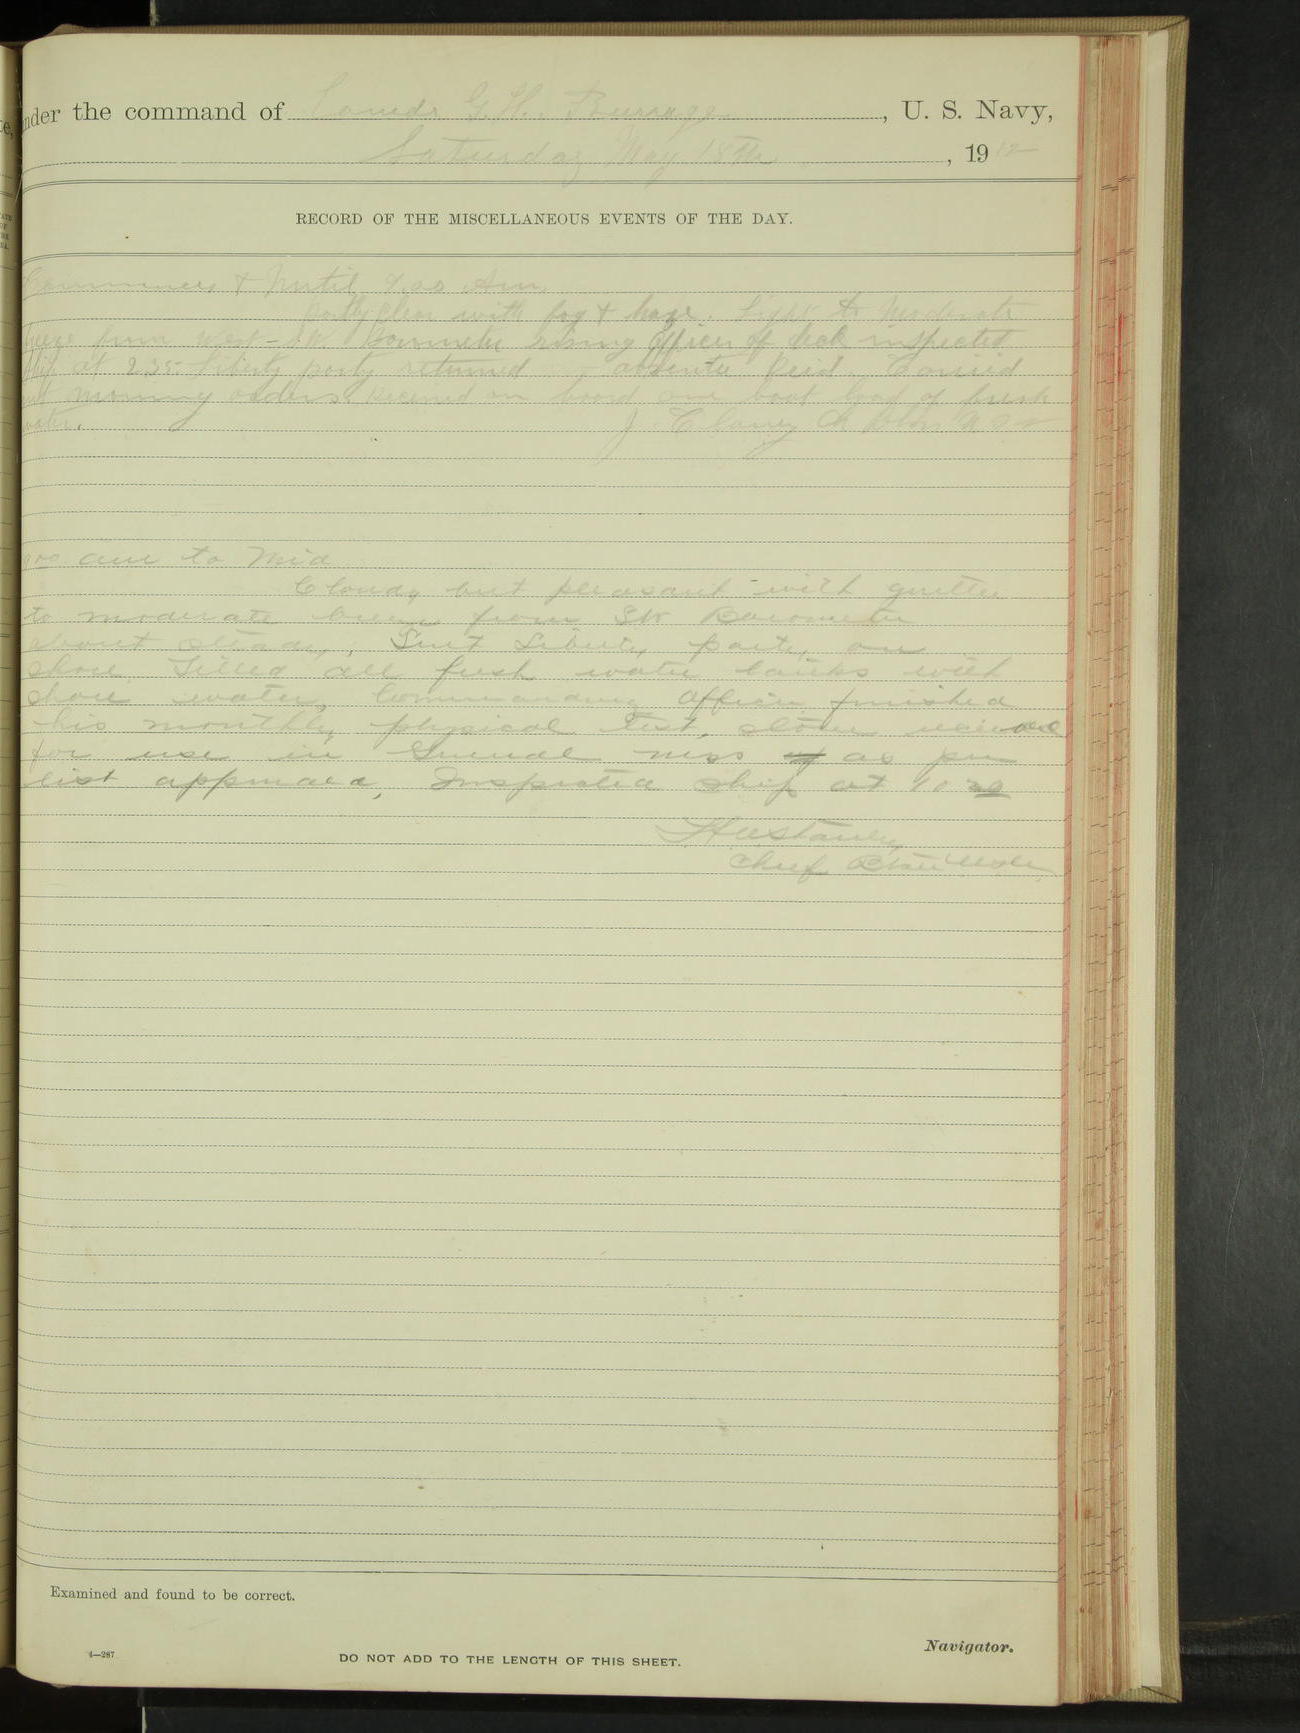 under the command of Comdr G. H. Burrage, U. S. Navy,
Saturday May 18th, 1912
RECORD OF THE MISCELLANEOUS EVENTS OF THE DAY.
Commences & Until 8.00 Am.
Partly Clear with fog & haze. Light to Moderate
breeze from West - S.W. Barometer rising Officer of deck inspected
ship at 2.35. Liberty party returned absentee Reid. Carried
out morning orders. Received on board one boat load of fresh
water.
J. Clancy Ch Btsn U S N
am to Mid
Cloudy but pleasant with gentle
to moderate breeze from SW Barometer
about steady, Sent Liberty party on
shore. Filled all fresh water tanks with
shore water, Commanding Officer finished
his monthly physical test, stores received
for use in General mess as per
list appended, Inspected ship at 10
Chief Btsn USN
Examined and found to be correct.
Navigator.
4—287
DO NOT ADD TO THE LENGTH OF THIS SHEET.